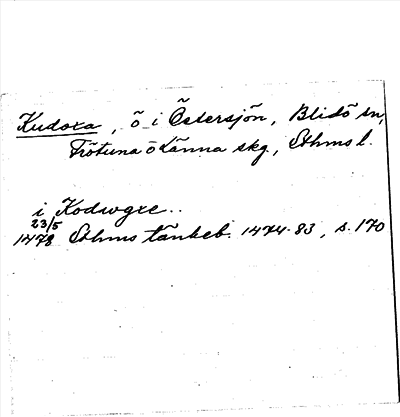 Kudoxa, ö i Östersjön, Blidö sn,
Frötuna o Länna skg, Sthms l.
i Kodwgxe..
23/5
1478 Sthms tänkeb. 1474-83, s. 170